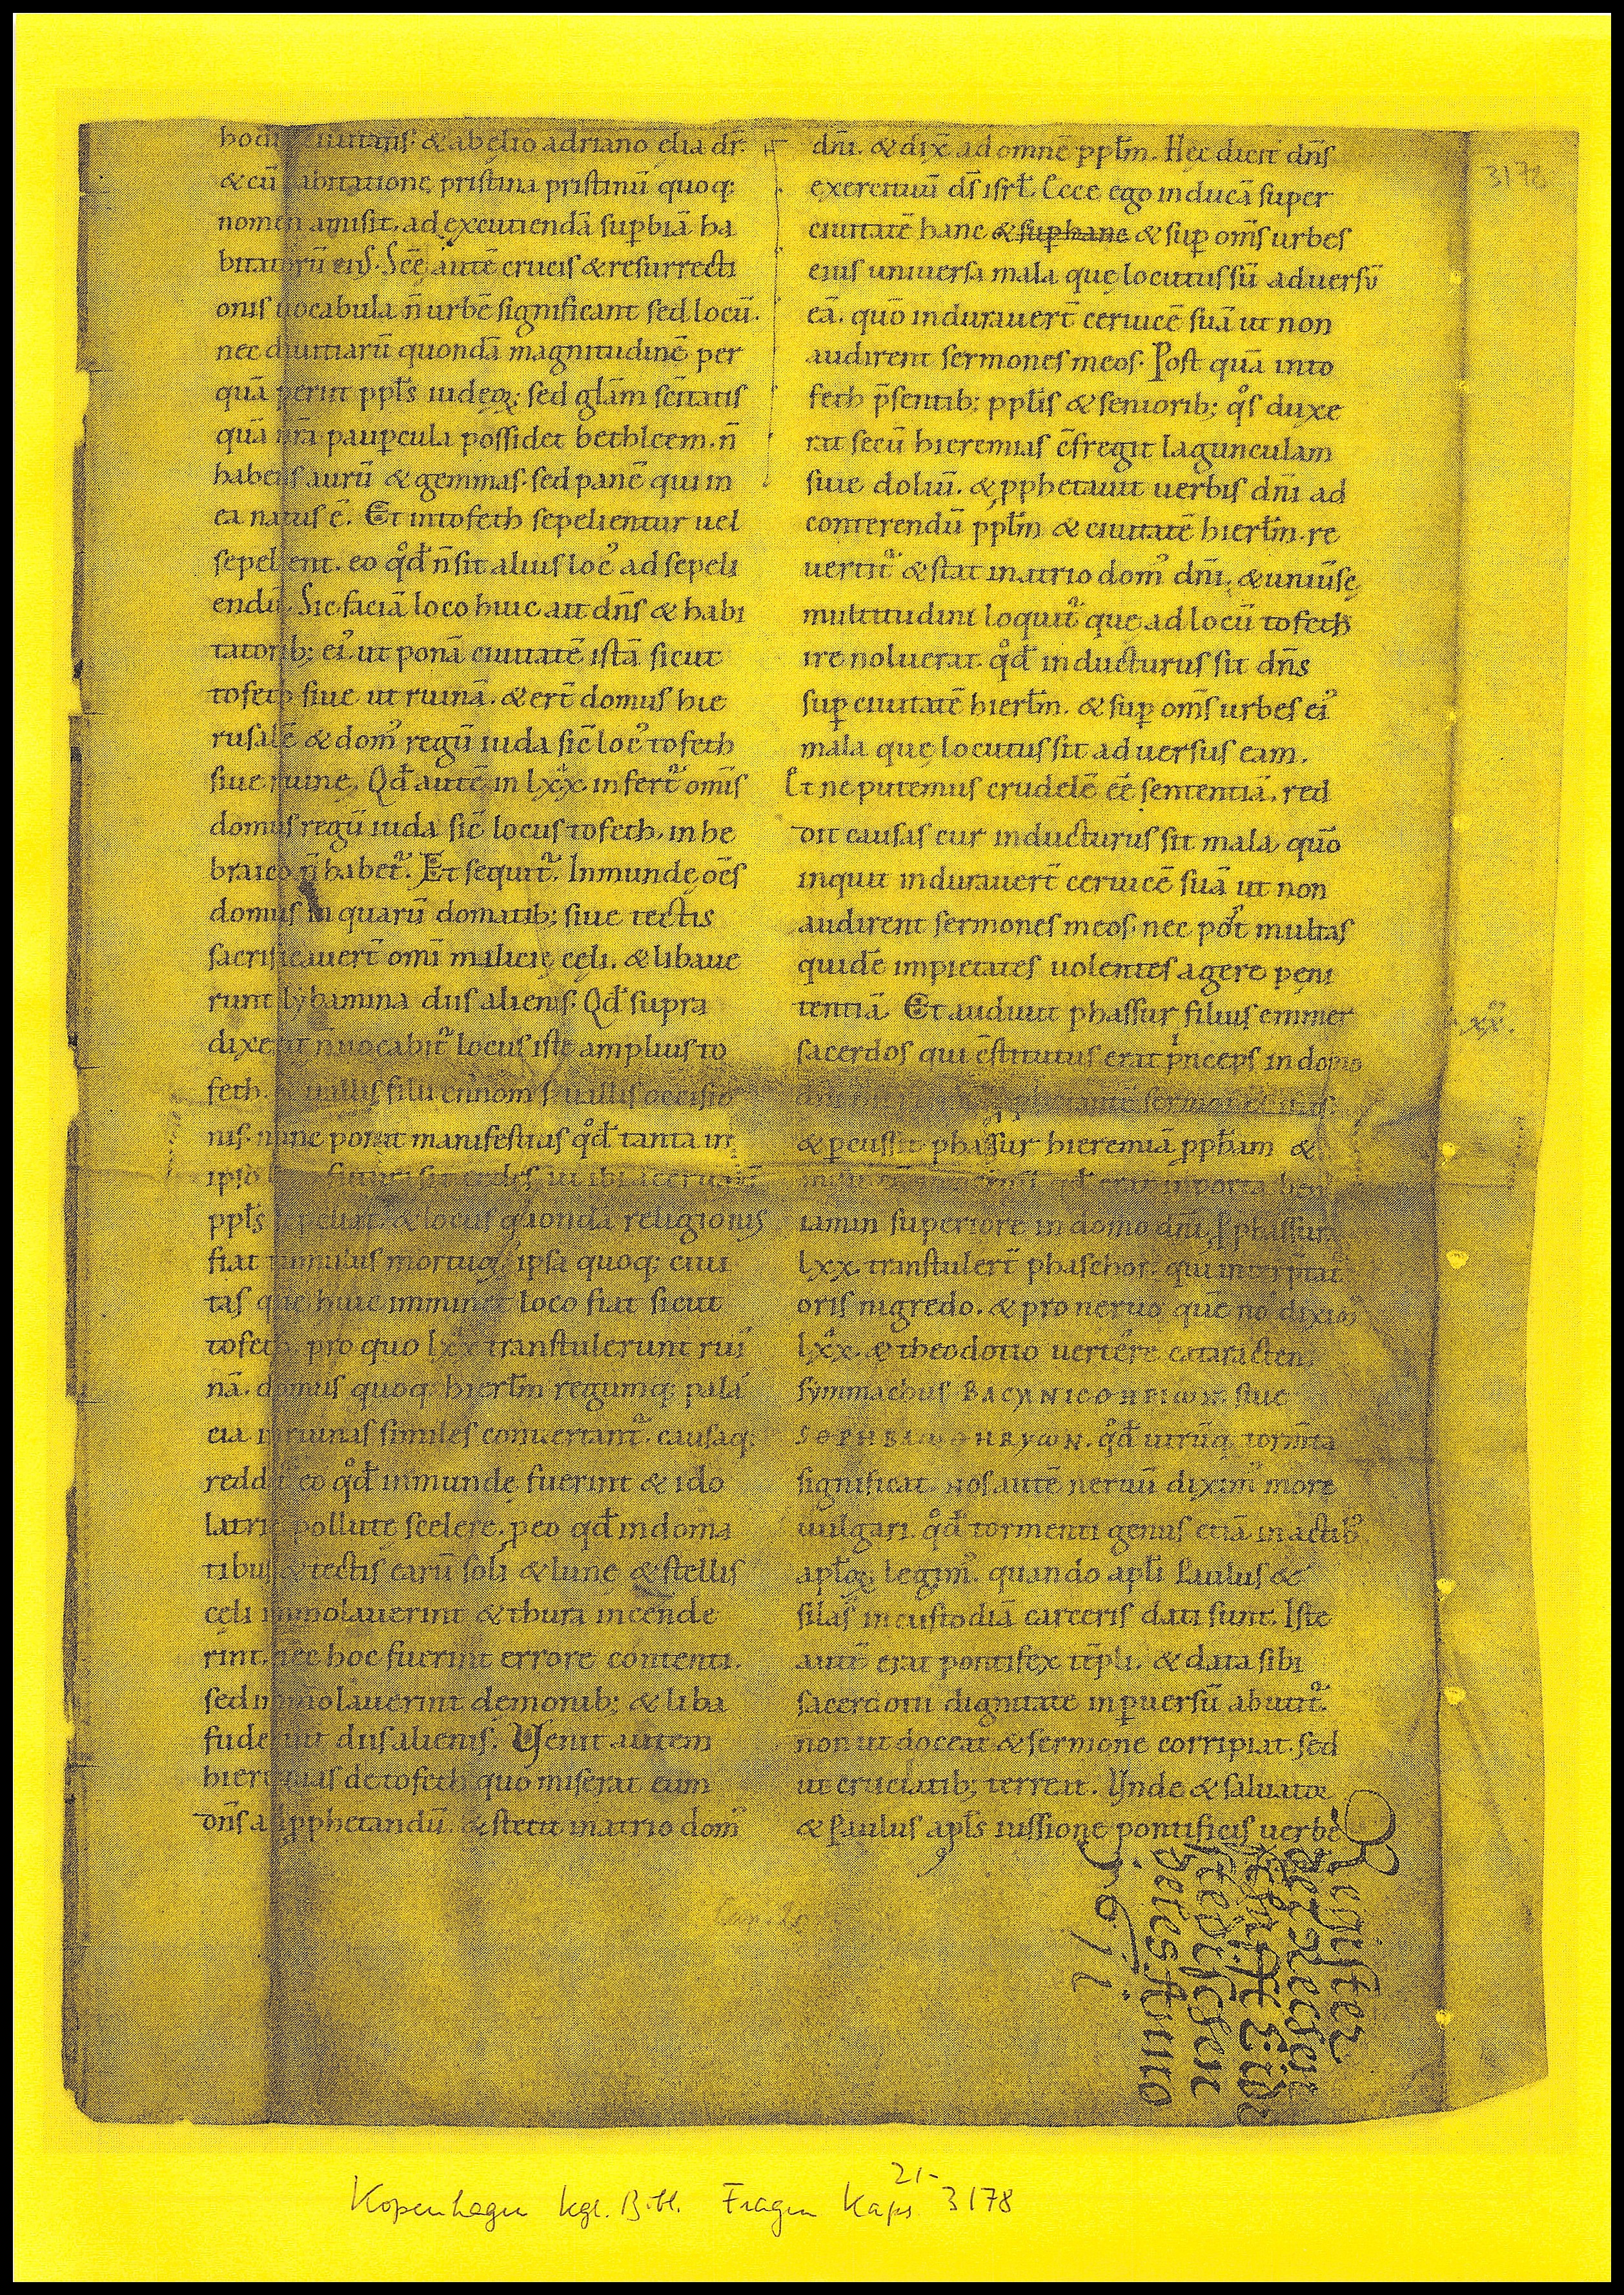 hodie ciuitatis. & ab elio adriano elia dr̄.
& cū habitatione pristina pristinū quoq;
nomen amisit. ad excutiendā sup̱biā ha
bitatorū eiꝰ. Scē autē crucis & resurrecti
onis uocabula n̄ urbē significant sed locū.
nec diuitiarū quondā magnitudinē per
quā perit pplꝭ iudeoꝝ; sed glām scītatis
quā nr̄a paup̱cula possidet bethleem. n̄
habens aurū & gemmas. sed panē qui in
ea natus ē. Et in tofeth sepelientur uel
sepelient. eo qđ n̄ sit alius locꝰ ad sepeli
endū. Sic faciā loco huic ait dn̄s & habi
tatorib; eiꝰ ut ponā ciuitatē istā sicut
tofeth siue ut ruinā. & ert̄ domus hie
rusalē & domꝰ regū iuda sic̄ locꝰ tofeth
siue ruine. Qđ autē in lxx infert᷑ om̄s
domus regū iuda sic̄ locus tofeth, in he
braico n̄ habet᷑. Et sequit᷑. Inmundę oēs
domus in quarū domatib; siue tectis
sacrificauert̄ omī milicię cęli. & libaue
runt lybamina diis alienis. Qđ supra
dixerat n̄ uocabit᷑ locus iste amplius to
feth. & uallis filii ennom s; uallis occisio
nis. nunc ponit manifestius qđ tanta in
ipso loco futura sit cędes ut ibi aceruatī
pplꝭ sepeliat᷑. & locus quondā religionis
fiat tumulus mortuoꝝ, ipsa quoq; ciui
tas que huic imminet loco fiat sicut
tofeth, pro quo lxx transtulerunt rui
nā. domus quoq; hierlm̄ regumq; pala
cia in ruinas similes conuertant᷑. causaq;
reddit̄ eo qđ inmundę fuerint & ido
latrię pollutę scelere. p̱eo qđ in doma
tibus & tectis earū soli & lunę & stellis
cęli immolauerint & thura incende
rint. nec hoc fuerint errore contenti.
sed immolauerint demonib; & liba
fuderint diis alienis. Venit autem
hieremias de tofeth quo miserat eum
dn̄s ad pphetandū. & stetit in atrio domꝰ
dn̄i. & dix̄ ad omnē pplm̄. Hęc dicit dn̄s
exercituū dš isrł. Ecce ego inducā super
ciuitatē hanc & sup̱ hanc & sup̱ om̄s urbes
eius uniuersa mala quę locutus sū aduersū
eā. quō indurauert̄ ceruicē suā ut non
audirent sermones meos. Post quā in to
feth p̄sentib; pplꝭs & seniorib; qͦs duxe
rat secū hieremias c̄fregit lagunculam
siue doliū. & pphetauit uerbis dn̄i ad
conterendū pplm̄ & ciuitatē hierlm̄. re
uertit᷑ & stat in atrio domꝰ dn̄i. & uniuꝰsę
multitudini loquit᷑ quę ad locū tofeth
ire noluerat. qđ inducturus sit dn̄s
sup̱ ciuitatē hierlm̄. & sup̱ om̄s urbes eiꝰ
mala quę locutus sit aduersus eam.
Et ne putemus crudelē eē sententiā. red
dit causas cur inducturus sit mala. quō
inquit indurauert̄ ceruicē suā ut non
audirent sermones meos. nec pot̄ multas
quidē impietates uolentes agere peni
tentiā. Et audiuit phassur filius emmer
sacerdos qui c̄stitutus erat p̱nceps in domo
& p̱cussit phassur hieremiā ppham &
iamin superiore in domo dn̄i. ꝓ phassur
lxx. transtulert̄ phaschor. qui interp̱tat᷑
oris nigredo. & pro neruo quē nos diximꝰ
lxx. & theodotio uertēre cataracten
symmachus ΒΑCΑΝΙCΤΗΡΙΟΝ siue
qđ utrūq; tormta
significat. nos autē neruū diximꝰ more
uulgari. qđ tormenti genus etiā in actibꝰ
apłoꝝ legimꝰ. quando apłi Paulus &
silas in custodiā carceris dati sunt. Iste
autē erat pontifex tēpli. & data sibi
sacerdotii dignitate in p̱uersū abutit᷑.
non ut doceat & sermone corripiat. sed
ut cruciatib; terreat. Vnde & saluator
& Paulus apłs iussione pontificis uerbe
3178
xx.
Register
Stedischen
Anno
Kopenhagen kgl. Bibl. Fragm Kaps 21- 3178